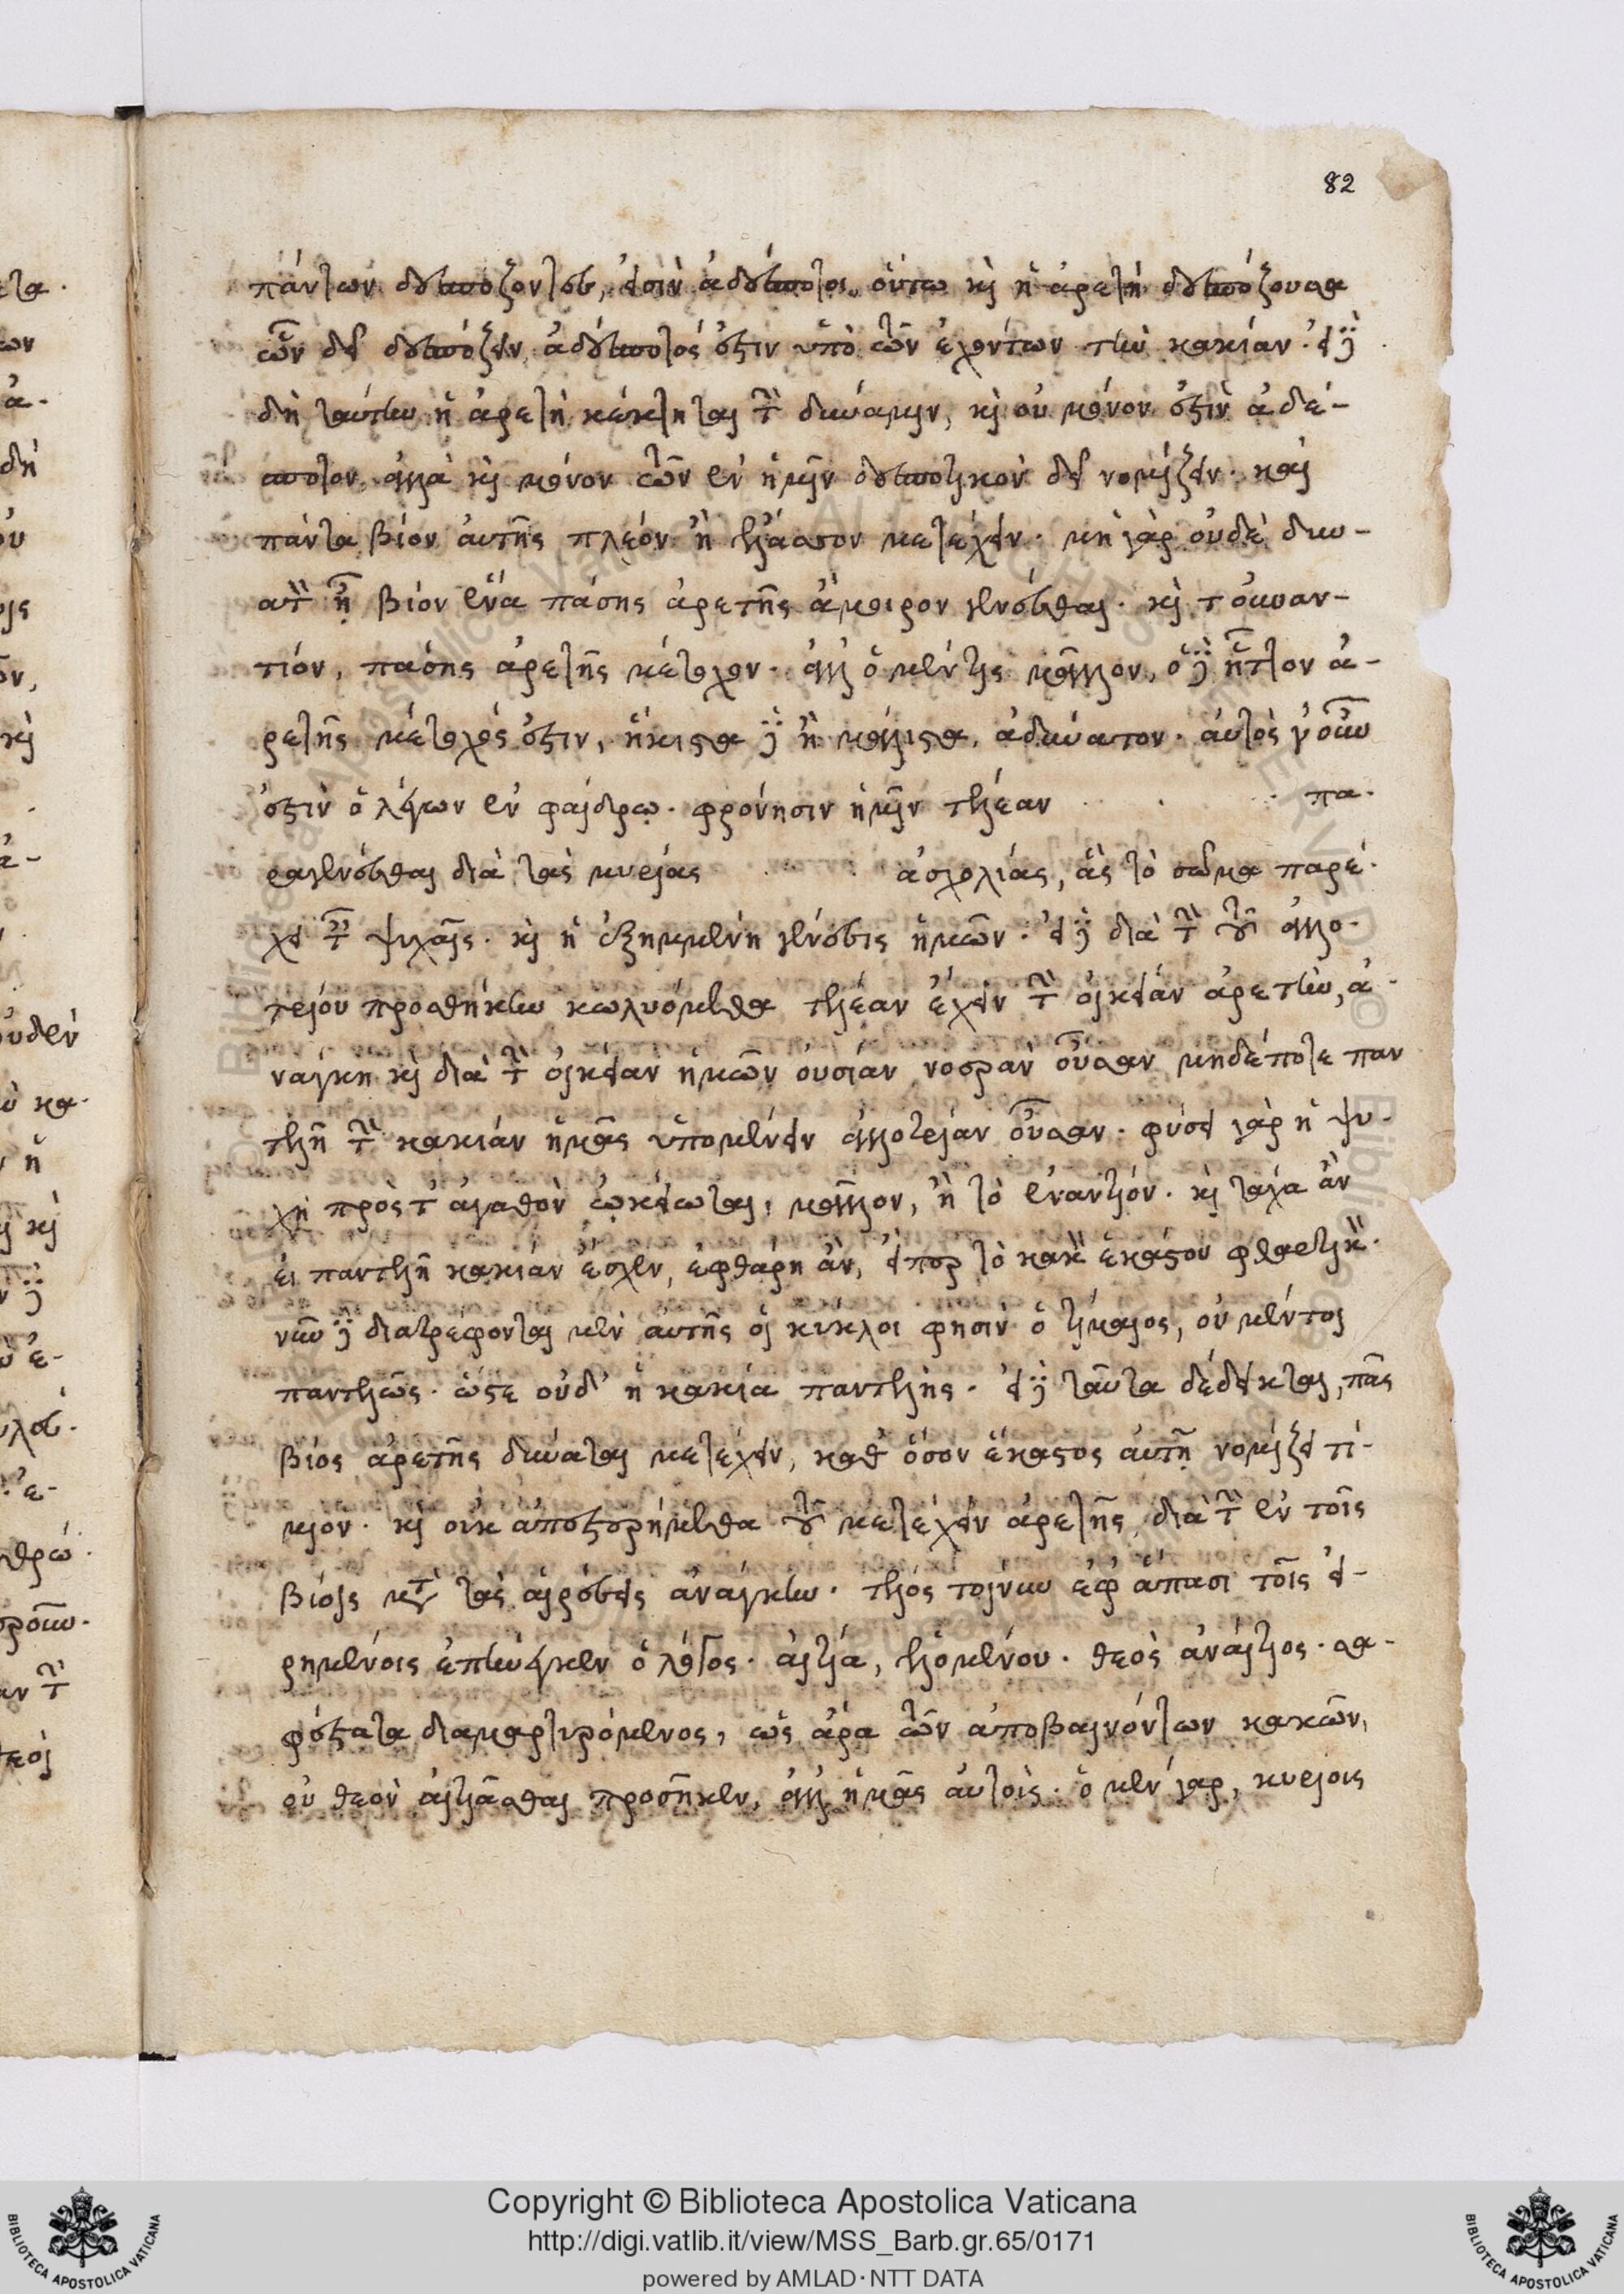 82
πάντων δεσπόζοντες, εἰσὶν ἀδέσποτοι. οὕτω κὶ ἡ ἀρετὴ δεσπόζουσα
ὧν δεῖ δεσπόζειν, ἀδέσποτός ἐστιν ὑπὸ τῶν ἐχόντων τὴν κακίαν. εἰ δὲ
δὴ ταύτην ἡ ἀρετὴ κέκτηται τὴν δύναμιν, κὶ οὐ μόνον ἐστὶν ἀδέ-
σποτον, ἀλλὰ κὶ μόνον τῶν ἐν ἡμῖν δεσποτικὸν δεῖ νομίζειν. καὶ
πάντα βίον αὐτῆς πλέον ἢ ἔλασσον μετέχειν. μὴ γὰρ οὐδὲ δυνα-
τὸν ᾖ βίον ἕνα πάσης ἀρετῆς ἄμοιρον γενέσθαι. κὶ τουναν-
τίον, πάσης ἀρετῆς μέτοχον. ἀλλ' ὁ μέν τις μᾶλλον, ὁ δὲ ἧττον ἀ-
ρετῆς μέτοχός ἐστιν, ἥκιστα δὲ ἢ μάλιστα, ἀδύνατον. αὐτὸς γοῦν
ἐστὶν ὁ λέγων ἐν φαίδρῳ. φρόνησιν ἡμῖν τελέαν πα-
ραγενέσθαι διὰ τὰς μυρίας ἀσχολίας, ἃς τὸ σῶμα παρέ-
χει τ ψυχαῖς. κὶ ἡ ἐξῃρημένη γένεσις ἡμῶν. εἰ δὲ διὰ τὴν τοῦ ἀλλο-
τρίου προσθήκην κωλυόμεθα τελέαν ἔχειν τὴν οἰκείαν ἀρετὴν, ἀ-
νάγκη κὶ διὰ τὴν οἰκείαν ἡμῶν οὐσίαν νοερὰν οὖσαν μηδέποτε παν
τελῆ τὴν κακίαν ἡμᾶς ὑπομένειν ἀλλοτρίαν οὖσαν. φύσει γὰρ ἡ ψυ-
χὴ πρὸς τ ἀγαθὸν ᾠκείωται, μᾶλλον, ἢ τὸ ἐναντίον. κὶ τάχα ἂν
εἰ παντελῆ κακίαν ἔσχεν, ἐφθάρη ἂν, εἴπερ τὸ κακὸν ἑκάστου φθαρτικὸν.
νῦν δὲ διαστρέφονται μὲν αὐτῆς οἱ κύκλοι φησὶν ὁ τίμαιος, οὐ μέντοι
παντελῶς. ὥστε οὐδ' ἡ κακία παντελής. εἰ δὲ ταῦτα δέδεικται, πᾶς
βίος ἀρετῆς δύναται μετέχειν, καθ' ὅσον ἕκαστος αὐτὴν νομίζει τί-
μιον. κὶ οὐκ ἀπεστερήμεθα τοῦ μετέχειν ἀρετῆς, διὰ τὴν ἐν τοῖς
βίοις κὶ τὰς αἱρέσεις ἀνάγκην. τέλος τοίνυν ἐφ' ἅπασι τοῖς εἰ-
ρημένοις ἐπήνεγκεν ὁ λόγος. αἰτία, ἑλομένου. θεὸς ἀναίτιος. σα-
φέστατα διαμαρτυρόμενος, ὡς ἄρα τῶν ἀποβαινόντων κακῶν,
οὐ θεὸν αἰτιᾶσθαι προσῆκεν, ἀλλ' ἡμᾶς αὐτοὺς. ὁ μὲν γὰρ, κυρίοις
Copyright © Biblioteca Apostolica Vaticana
http://digi.vatlib.it/view/MSS_Barb.gr.65/0171
powered by AMLAD · NTT DATA